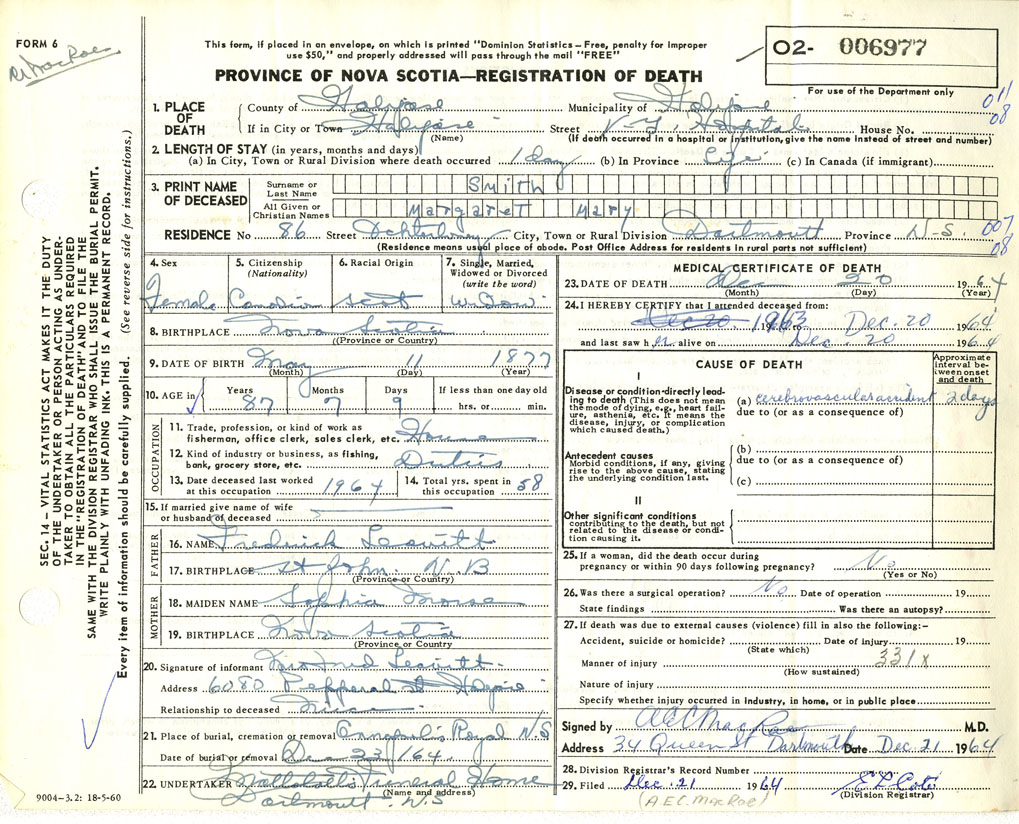 FORM 6
This form, if placed in an envelope, on which is printed "Dominion Statistics – Free, penalty for Improper
use $50," and properly addressed will pass through the mail "FREE"
02- 006977
For use of the Department only
PROVINCE OF NOVA SCOTIA—REGISTRATION OF DEATH
011
08
1. PLACE OF DEATH
County of Halifax Municipality of Halifax
If in City or Town Halifax Street V. G. Hospital House No.
(Name) (If death occurred in a hospital or institution, give the name instead of street and number)
2. LENGTH OF STAY (in years, months and days)
(a) In City, Town or Rural Division where death occurred 1 day (b) In Province Life (c) In Canada (if immigrant)
3. PRINT NAME OF DECEASED
Surname or Last Name Smith
All Given or Christian Names Margaret Mary
RESIDENCE No 86 Street Ochterloney City, Town or Rural Division Dartmouth Province N-S.
007
08
(Residence means usual place of abode. Post Office Address for residents in rural parts not sufficient)
4. Sex
Female
5. Citizenship (Nationality)
Canadian
6. Racial Origin
Scot
7. Single, Married, Widowed or Divorced (write the word)
Widow
8. BIRTHPLACE Nova Scotia
(Province or Country)
9. DATE OF BIRTH May 11 1877
(Month) (Day) (Year)
10. AGE in
Years Months Days If less than one day old
87 7 9 hrs. or min.
OCCUPATION
11. Trade, profession, or kind of work as
fisherman, office clerk, sales clerk, etc. House
12. Kind of industry or business, as fishing,
bank, grocery store, etc. Duties
13. Date deceased last worked at this occupation 1964
14. Total yrs. spent in this occupation 58
15. If married give name of wife
or husband of deceased
FATHER
16. NAME Fredrick Leavitt
17. BIRTHPLACE St John. N. B
(Province or Country)
MOTHER
18. MAIDEN NAME Sophia Morse
19. BIRTHPLACE Nova Scotia
(Province or Country)
20. Signature of informant Leavitt
Address 6080 St Halifax
Relationship to deceased
21. Place of burial, cremation or removal Annapolis Royal N.S
Date of burial or removal Dec 23/64.
22. UNDERTAKER Funeral Home
(Name and address)
Dartmouth N.S
9004–3.2: 18-5-60
MEDICAL CERTIFICATE OF DEATH
23. DATE OF DEATH Dec 20 1964
(Month) (Day) (Year)
24. I HEREBY CERTIFY that I attended deceased from:
Dec 20 1963 to Dec. 20 1964
and last saw her alive on Dec. 20 1964
CAUSE OF DEATH
Approximate interval between onset and death
I
Disease or condition-directly leading to death (This does not mean the mode of dying, e.g., heart failure, asthenia, etc. It means the disease, injury, or complication which caused death.)
(a) cerebrovascular accident 2 days
due to (or as a consequence of)
Antecedent causes
Morbid conditions, if any, giving rise to the above cause, stating the underlying condition last.
(b)
due to (or as a consequence of)
(c)
II
Other significant conditions
contributing to the death, but not related to the disease or condition causing it.
25. If a woman, did the death occur during
pregnancy or within 90 days following pregnancy? No
(Yes or No)
26. Was there a surgical operation? No Date of operation 19
State findings Was there an autopsy?
27. If death was due to external causes (violence) fill in also the following:-
Accident, suicide or homicide? Date of injury 19
(State which)
Manner of injury 331x
(How sustained)
Nature of injury
Specify whether injury occurred in industry, in home, or in public place
Signed by AEC MacRae M.D.
Address 34 Queen St Dartmouth Date Dec 21 1964
28. Division Registrar's Record Number
29. Filed Dec. 21 1964
(Division Registrar)
(A.E.C. MacRae)
SEC. 14 – VITAL STATISTICS ACT MAKES IT THE DUTY
OF THE UNDERTAKER OR PERSON ACTING AS UNDER-
TAKER TO OBTAIN ALL THE PARTICULARS REQUIRED
IN THE "REGISTRATION OF DEATH" AND TO FILE THE
SAME WITH THE DIVISION REGISTRAR WHO SHALL ISSUE THE BURIAL PERMIT.
WRITE PLAINLY WITH UNFADING INK. THIS IS A PERMANENT RECORD.
Every item of information should be carefully supplied. (See reverse side for instructions.)